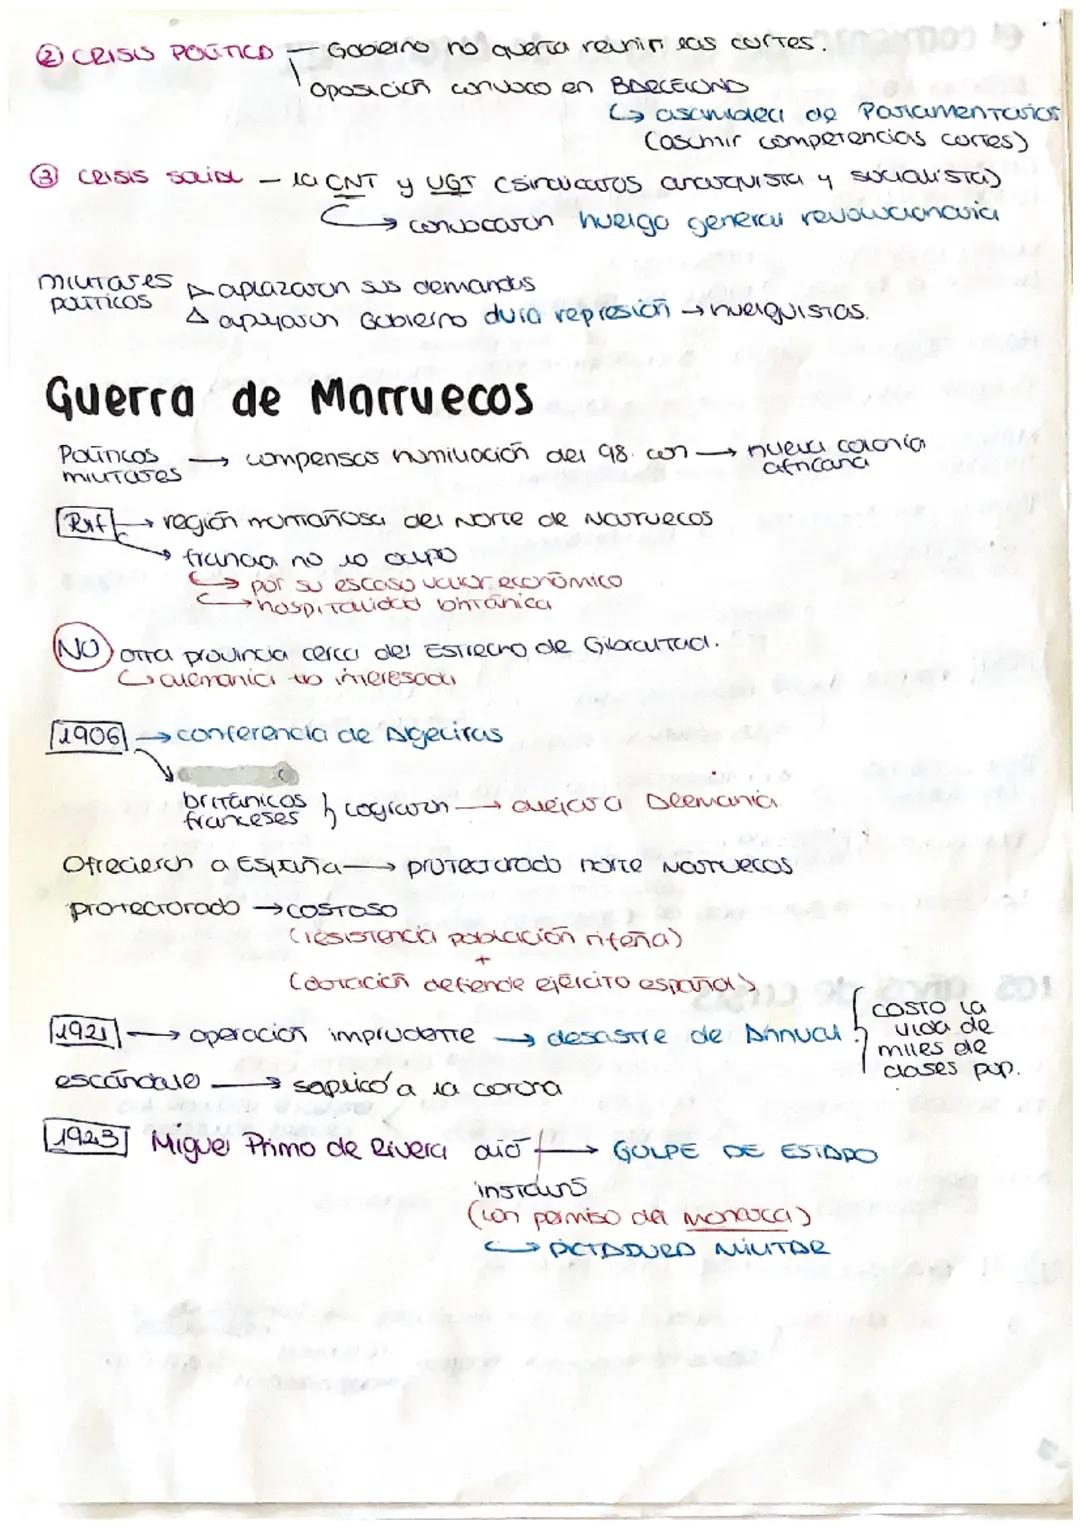 ② CRISIS POLÍTICA — Gobierno no quería reunir las cortes.
oposición convoco en BARCELONA
↳ asamblea de Parlamentarios
(asumir competencias cortes)
③ CRISIS SOCIAL — la CNT y UGT (sindicatos anarquista y socialista)
↳ convocaron huelga general revolucionaria
militares
políticos
△ aplazaron sus demandas
△ apoyaron Gobierno dura represión → huelguistas.
Guerra de Marruecos
Políticos
militares → compensas humillación del 98. con → nueva colonia
africana
Rif → región montañosa del Norte de Marruecos
→ francia no lo ocupo
↳ por su escaso valor económico
↳ hospitalidad británica
NO otra provincia cerca del Estrecho de Gibraltar.
↳ alemania interesada
1906 → conferencia de Algeciras
británicos
franceses } lograron → alejar a Alemania
Ofrecieron a España → protectorado norte Marruecos
protectorado → costoso
(resistencia población rifeña)
+
(dotación defiende ejército español)
1921 → operación imprudente → desastre de Annual { costo la
vida de
miles de
clases pop.
escándalo → salpicó a la corona
1923 Miguel Primo de Rivera dió → GOLPE DE ESTADO
(con permiso del monarca)
↳ DICTADURA MILITAR